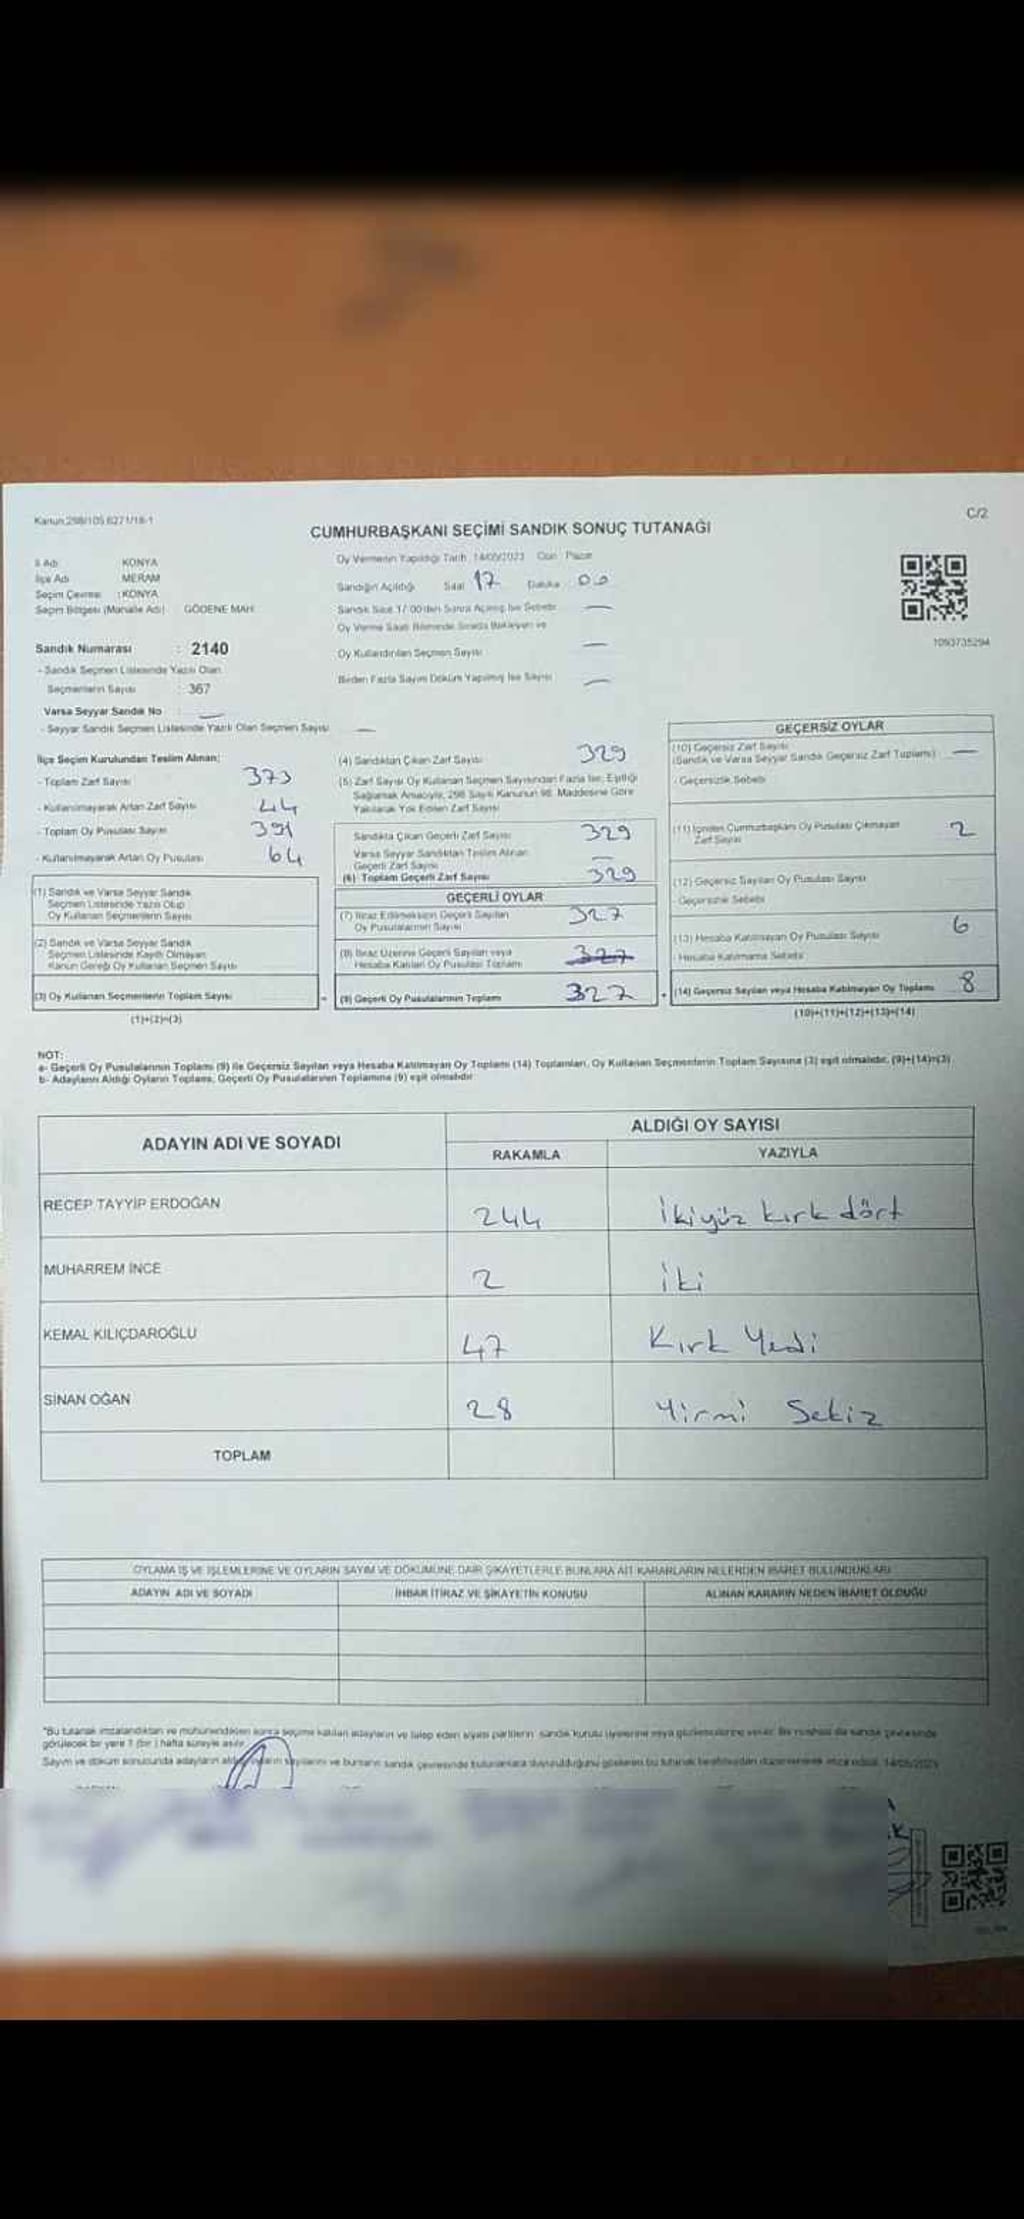 Kanun:298/105.6271/18-1
C/2
CUMHURBAŞKANI SEÇİMİ SANDIK SONUÇ TUTANAĞI
İl Adı KONYA
İlçe Adı MERAM
Seçim Çevresi : KONYA
Seçim Bölgesi (Mahalle Adı) GÖDENE MAH.
Sandık Numarası : 2140
- Sandık Seçmen Listesinde Yazılı Olan
Seçmenlerin Sayısı : 367
Varsa Seyyar Sandık No : —
- Seyyar Sandık Seçmen Listesinde Yazılı Olan Seçmen Sayısı —
Oy Vermenin Yapıldığı Tarih 14/05/2023 Gün Pazar
Sandığın Açıldığı Saat 17 Dakika 00
Sandık Saat 17:00'den Sonra Açılmış İse Sebebi —
Oy Verme Saati Bitiminde Sırada Bekleyen ve
Oy Kullandırılan Seçmen Sayısı —
Birden Fazla Sayım Döküm Yapılmış İse Sayısı —
1093735294
İlçe Seçim Kurulundan Teslim Alınan;
- Toplam Zarf Sayısı 373
- Kullanılmayarak Artan Zarf Sayısı 44
- Toplam Oy Pusulası Sayısı 391
- Kullanılmayarak Artan Oy Pusulası 64
(1) Sandık ve Varsa Seyyar Sandık
Seçmen Listesinde Yazılı Olup
Oy Kullanan Seçmenlerin Sayısı
(2) Sandık ve Varsa Seyyar Sandık
Seçmen Listesinde Kayıtlı Olmayan
Kanun Gereği Oy Kullanan Seçmen Sayısı
(3) Oy Kullanan Seçmenlerin Toplam Sayısı
(1)+(2)=(3)
(4) Sandıktan Çıkan Zarf Sayısı 329
(5) Zarf Sayısı Oy Kullanan Seçmen Sayısından Fazla İse; Eşitliği
Sağlamak Amacıyla, 298 Sayılı Kanunun 98. Maddesine Göre
Yakılarak Yok Edilen Zarf Sayısı
Sandıkta Çıkan Geçerli Zarf Sayısı 329
Varsa Seyyar Sandıktan Teslim Alınan
Geçerli Zarf Sayısı —
(6) Toplam Geçerli Zarf Sayısı 329
GEÇERLİ OYLAR
(7) İtiraz Edilmeksizin Geçerli Sayılan
Oy Pusulalarının Sayısı 327
(8) İtiraz Üzerine Geçerli Sayılan veya
Hesaba Katılan Oy Pusulası Toplamı 327
= (9) Geçerli Oy Pusulalarının Toplamı 327
GEÇERSİZ OYLAR
(10) Geçersiz Zarf Sayısı
(Sandık ve Varsa Seyyar Sandık Geçersiz Zarf Toplamı) —
- Geçersizlik Sebebi
(11) İçinden Cumhurbaşkanı Oy Pusulası Çıkmayan
Zarf Sayısı 2
(12) Geçersiz Sayılan Oy Pusulası Sayısı
Geçersizlik Sebebi
(13) Hesaba Katılmayan Oy Pusulası Sayısı 6
Hesaba Katılmama Sebebi
+ (14) Geçersiz Sayılan veya Hesaba Katılmayan Oy Toplamı 8
(10)+(11)+(12)+(13)=(14)
NOT:
a- Geçerli Oy Pusulalarının Toplamı (9) ile Geçersiz Sayılan veya Hesaba Katılmayan Oy Toplamı (14) Toplamları, Oy Kullanan Seçmenlerin Toplam Sayısına (3) eşit olmalıdır. (9)+(14)=(3)
b- Adayların Aldığı Oyların Toplamı, Geçerli Oy Pusulalarının Toplamına (9) eşit olmalıdır.
ADAYIN ADI VE SOYADI ALDIĞI OY SAYISI
RAKAMLA YAZIYLA
RECEP TAYYİP ERDOĞAN 244 ikiyüz kırk dört
MUHARREM İNCE 2 iki
KEMAL KILIÇDAROĞLU 47 Kırk Yedi
SİNAN OĞAN 28 Yirmi Sekiz
TOPLAM
OYLAMA İŞ VE İŞLEMLERİNE VE OYLARIN SAYIM VE DÖKÜMÜNE DAİR ŞİKAYETLERLE BUNLARA AİT KARARLARIN NELERDEN İBARET BULUNDUKLARI
ADAYIN ADI VE SOYADI İHBAR İTİRAZ VE ŞİKAYETİN KONUSU ALINAN KARARIN NEDEN İBARET OLDUĞU
*Bu tutanak imzalandıktan ve mühürlendikten sonra seçime katılan adayların ve talep eden siyasi partilerin sandık kurulu üyelerine veya gözlemcilerine verilir. Bir nüshası da sandık çevresinde
görülecek bir yere 1 (bir) hafta süreyle asılır.
Sayım ve döküm sonucunda adayların oy sayılarını ve bunların sandık çevresinde bulunanlara duyurulduğunu gösteren bu tutanak tarafımızdan düzenlenerek imza edildi. 14/05/2023